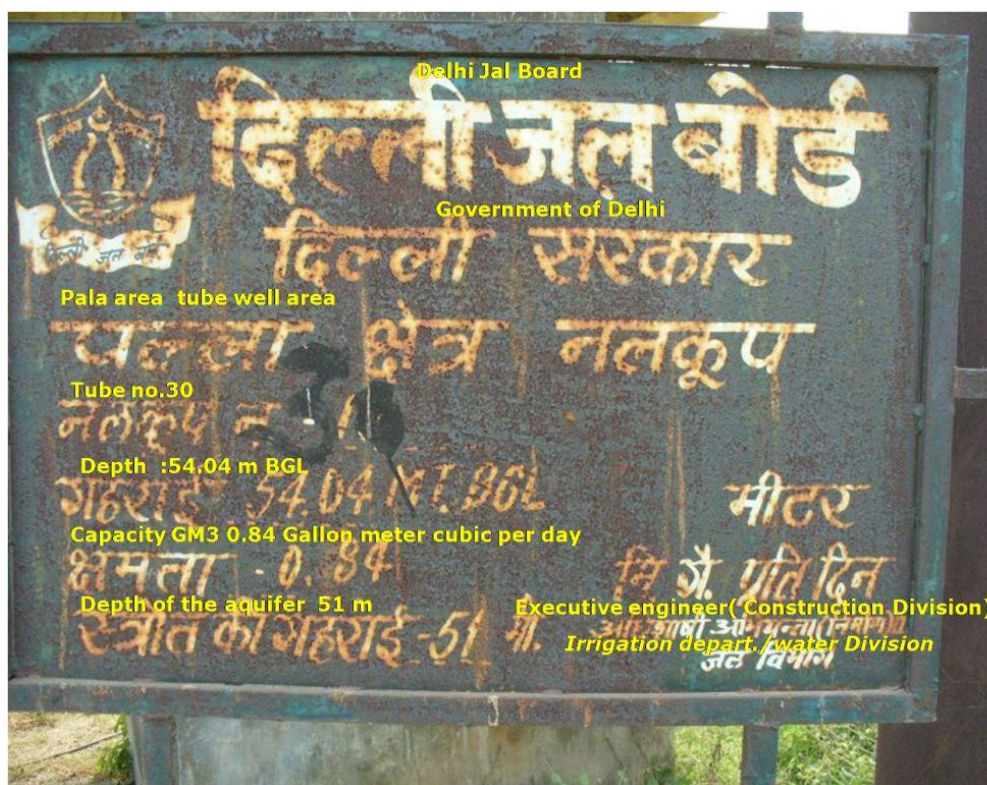 Delhi Jal Board
दिल्ली जल बोर्ड
दिल्ली जल बोर्ड
Government of Delhi
दिल्ली सरकार
Pala area tube well area
पल्ला क्षेत्र नलकूप
Tube no.30
नलकूप न - 30
Depth :54.04 m BGL
गहराई 54.04 MT.BGL मीटर
Capacity GM3 0.84 Gallon meter cubic per day
क्षमता - 0.84 मि. गै. प्रति दिन
Depth of the aquifer 51 m
स्त्रोत की गहराई - 51 मी.
Executive engineer( Construction Division)
Irrigation depart. /water Division
जल विभाग